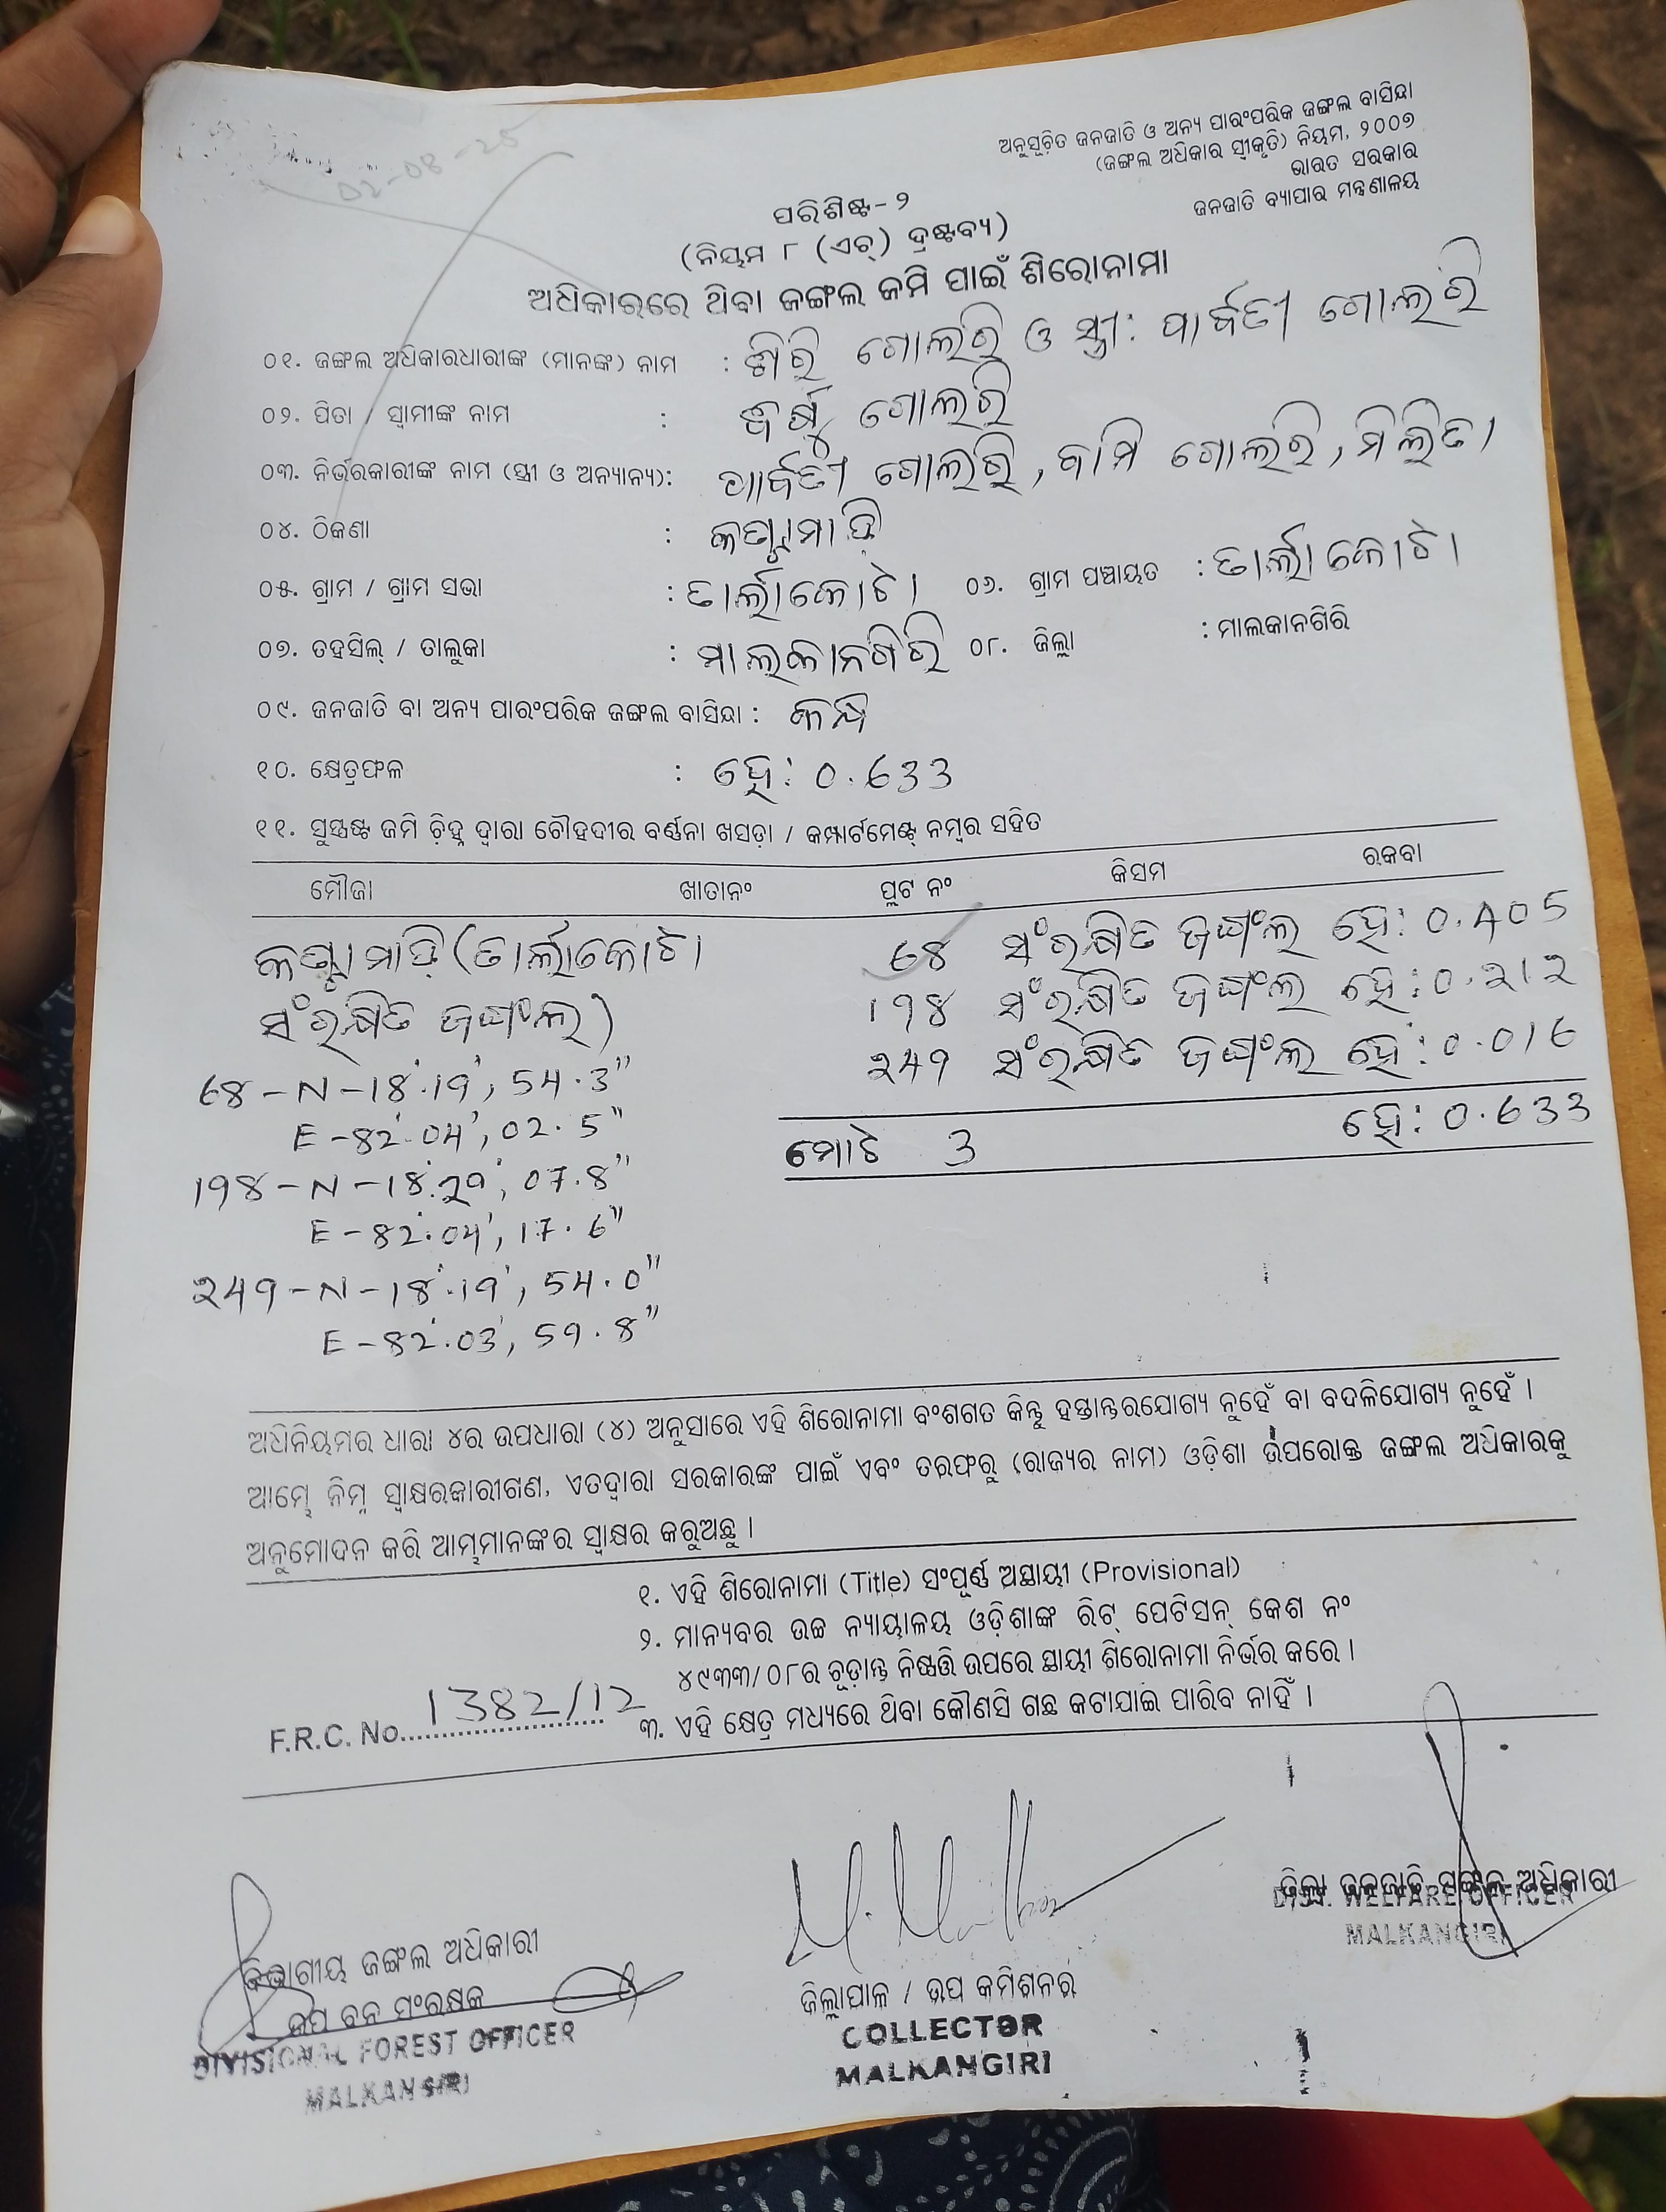 02-08-25
ଅନୁସୂଚିତ ଜନଜାତି ଓ ଅନ୍ୟ ପାରଂପରିକ ଜଙ୍ଗଲ ବାସିନ୍ଦା
(ଜଙ୍ଗଲ ଅଧିକାର ସ୍ୱୀକୃତି) ନିୟମ, ୨୦୦୭
ଭାରତ ସରକାର
ଜନଜାତି ବ୍ୟାପାର ମନ୍ତ୍ରଣାଳୟ
ପରିଶିଷ୍ଟ-୨
(ନିୟମ ୮ (ଏଚ୍) ଦ୍ରଷ୍ଟବ୍ୟ)
ଅଧିକାରରେ ଥିବା ଜଙ୍ଗଲ ଜମି ପାଇଁ ଶିରୋନାମା
୦୧. ଜଙ୍ଗଲ ଅଧିକାରଧାରୀଙ୍କ (ମାନଙ୍କ) ନାମ : ଶିରି ଗୋଲରି ଓ ସ୍ତ୍ରୀ: ପାର୍ବତୀ ଗୋଲରି
୦୨. ପିତା / ସ୍ୱାମୀଙ୍କ ନାମ : ଗୋଲରି
୦୩. ନିର୍ଭରକାରୀଙ୍କ ନାମ (ସ୍ତ୍ରୀ ଓ ଅନ୍ୟାନ୍ୟ): ପାର୍ବତୀ ଗୋଲରି, ବାମି ଗୋଲରି, ମିଲିତା
୦୪. ଠିକଣା :
୦୫. ଗ୍ରାମ / ଗ୍ରାମ ସଭା : ତାର୍ଲାକୋଟା ୦୬. ଗ୍ରାମ ପଞ୍ଚାୟତ : ତାର୍ଲାକୋଟା
୦୭. ତହସିଲ୍ / ତାଲୁକା : ମାଲକାନଗିରି ୦୮. ଜିଲ୍ଲା : ମାଲକାନଗିରି
୦୯. ଜନଜାତି ବା ଅନ୍ୟ ପାରଂପରିକ ଜଙ୍ଗଲ ବାସିନ୍ଦା : କନ୍ଧ
୧୦. କ୍ଷେତ୍ରଫଳ : ହେ: 0.633
୧୧. ସୁସ୍ପଷ୍ଟ ଜମି ଚିହ୍ନ ଦ୍ୱାରା ଚୌହଦୀର ବର୍ଣ୍ଣନା ଖସଡ଼ା / କମ୍ପାର୍ଟମେଣ୍ଟ୍ ନମ୍ବର ସହିତ
ମୌଜା ଖାତାନଂ ପ୍ଲଟ ନଂ କିସମ ରକବା
(ତାର୍ଲାକୋଟା 68 ସଂରକ୍ଷିତ ଜଙ୍ଗଲ ହେ: 0.405
ସଂରକ୍ଷିତ ଜଙ୍ଗଲ) 198 ସଂରକ୍ଷିତ ଜଙ୍ଗଲ ହେ: 0.212
249 ସଂରକ୍ଷିତ ଜଙ୍ଗଲ ହେ: 0.016
ମୋଟ 3 ହେ: 0.633
68-N-18°.19', 54.3"
E-82°.04', 02.5"
198-N-18°.20', 07.8"
E-82°.04', 17.6"
249-N-18°.19', 54.0"
E-82°.03', 59.8"
ଅଧିନିୟମର ଧାରା ୪ର ଉପଧାରା (୪) ଅନୁସାରେ ଏହି ଶିରୋନାମା ବଂଶଗତ କିନ୍ତୁ ହସ୍ତାନ୍ତରଯୋଗ୍ୟ ନୁହେଁ ବା ବଦଳିଯୋଗ୍ୟ ନୁହେଁ ।
ଆମ୍ଭେ ନିମ୍ନ ସ୍ୱାକ୍ଷରକାରୀଗଣ, ଏତଦ୍ୱାରା ସରକାରଙ୍କ ପାଇଁ ଏବଂ ତରଫରୁ (ରାଜ୍ୟର ନାମ) ଓଡ଼ିଶା ଉପରୋକ୍ତ ଜଙ୍ଗଲ ଅଧିକାରକୁ
ଅନୁମୋଦନ କରି ଆମ୍ଭମାନଙ୍କର ସ୍ୱାକ୍ଷର କରୁଅଛୁ ।
୧. ଏହି ଶିରୋନାମା (Title) ସଂପୂର୍ଣ୍ଣ ଅସ୍ଥାୟୀ (Provisional)
୨. ମାନ୍ୟବର ଉଚ୍ଚ ନ୍ୟାୟାଳୟ ଓଡ଼ିଶାଙ୍କ ରିଟ୍ ପେଟିସନ୍ କେଶ ନଂ
୪୯୩୩/୦୮ର ଚୂଡ଼ାନ୍ତ ନିଷ୍ପତ୍ତି ଉପରେ ସ୍ଥାୟୀ ଶିରୋନାମା ନିର୍ଭର କରେ ।
୩. ଏହି କ୍ଷେତ୍ର ମଧ୍ୟରେ ଥିବା କୌଣସି ଗଛ କଟାଯାଇ ପାରିବ ନାହିଁ ।
F.R.C. No. 1382/12
ବିଭାଗୀୟ ଜଙ୍ଗଲ ଅଧିକାରୀ
ଉପ ବନ ସଂରକ୍ଷକ
DIVISIONAL FOREST OFFICER
MALKANGIRI
ଜିଲ୍ଲାପାଳ / ଉପ କମିଶନର
COLLECTOR
MALKANGIRI
ଜିଲ୍ଲା ଜନଜାତି ମଙ୍ଗଳ ଅଧିକାରୀ
DIST. WELFARE OFFICER
MALKANGIRI